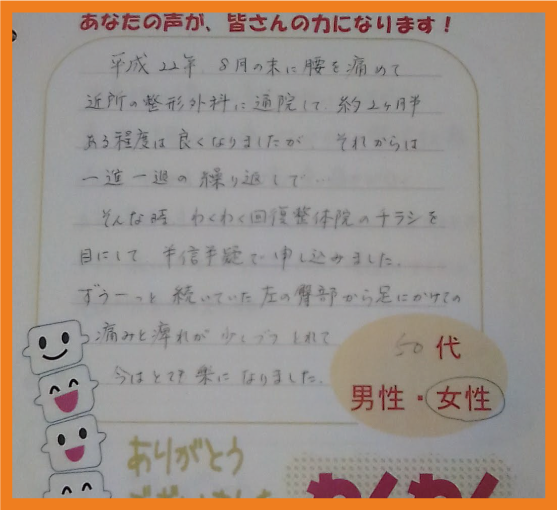 あなたの声が、皆さんの力になります！
平成22年、8月の末に腰を痛めて
近所の整形外科に通院して、約2ヶ月半
ある程度は良くなりましたが、それからは
一進一退の繰り返しで…
そんな時 わくわく回復整体院のチラシを
目にして 半信半疑で申し込みました。
ずうーっと 続いていた左の臀部から足にかけての
痛みと痺れが 少しづつとれて
今はとても楽になりました。
50代
男性・女性
ありがとう
わくわく